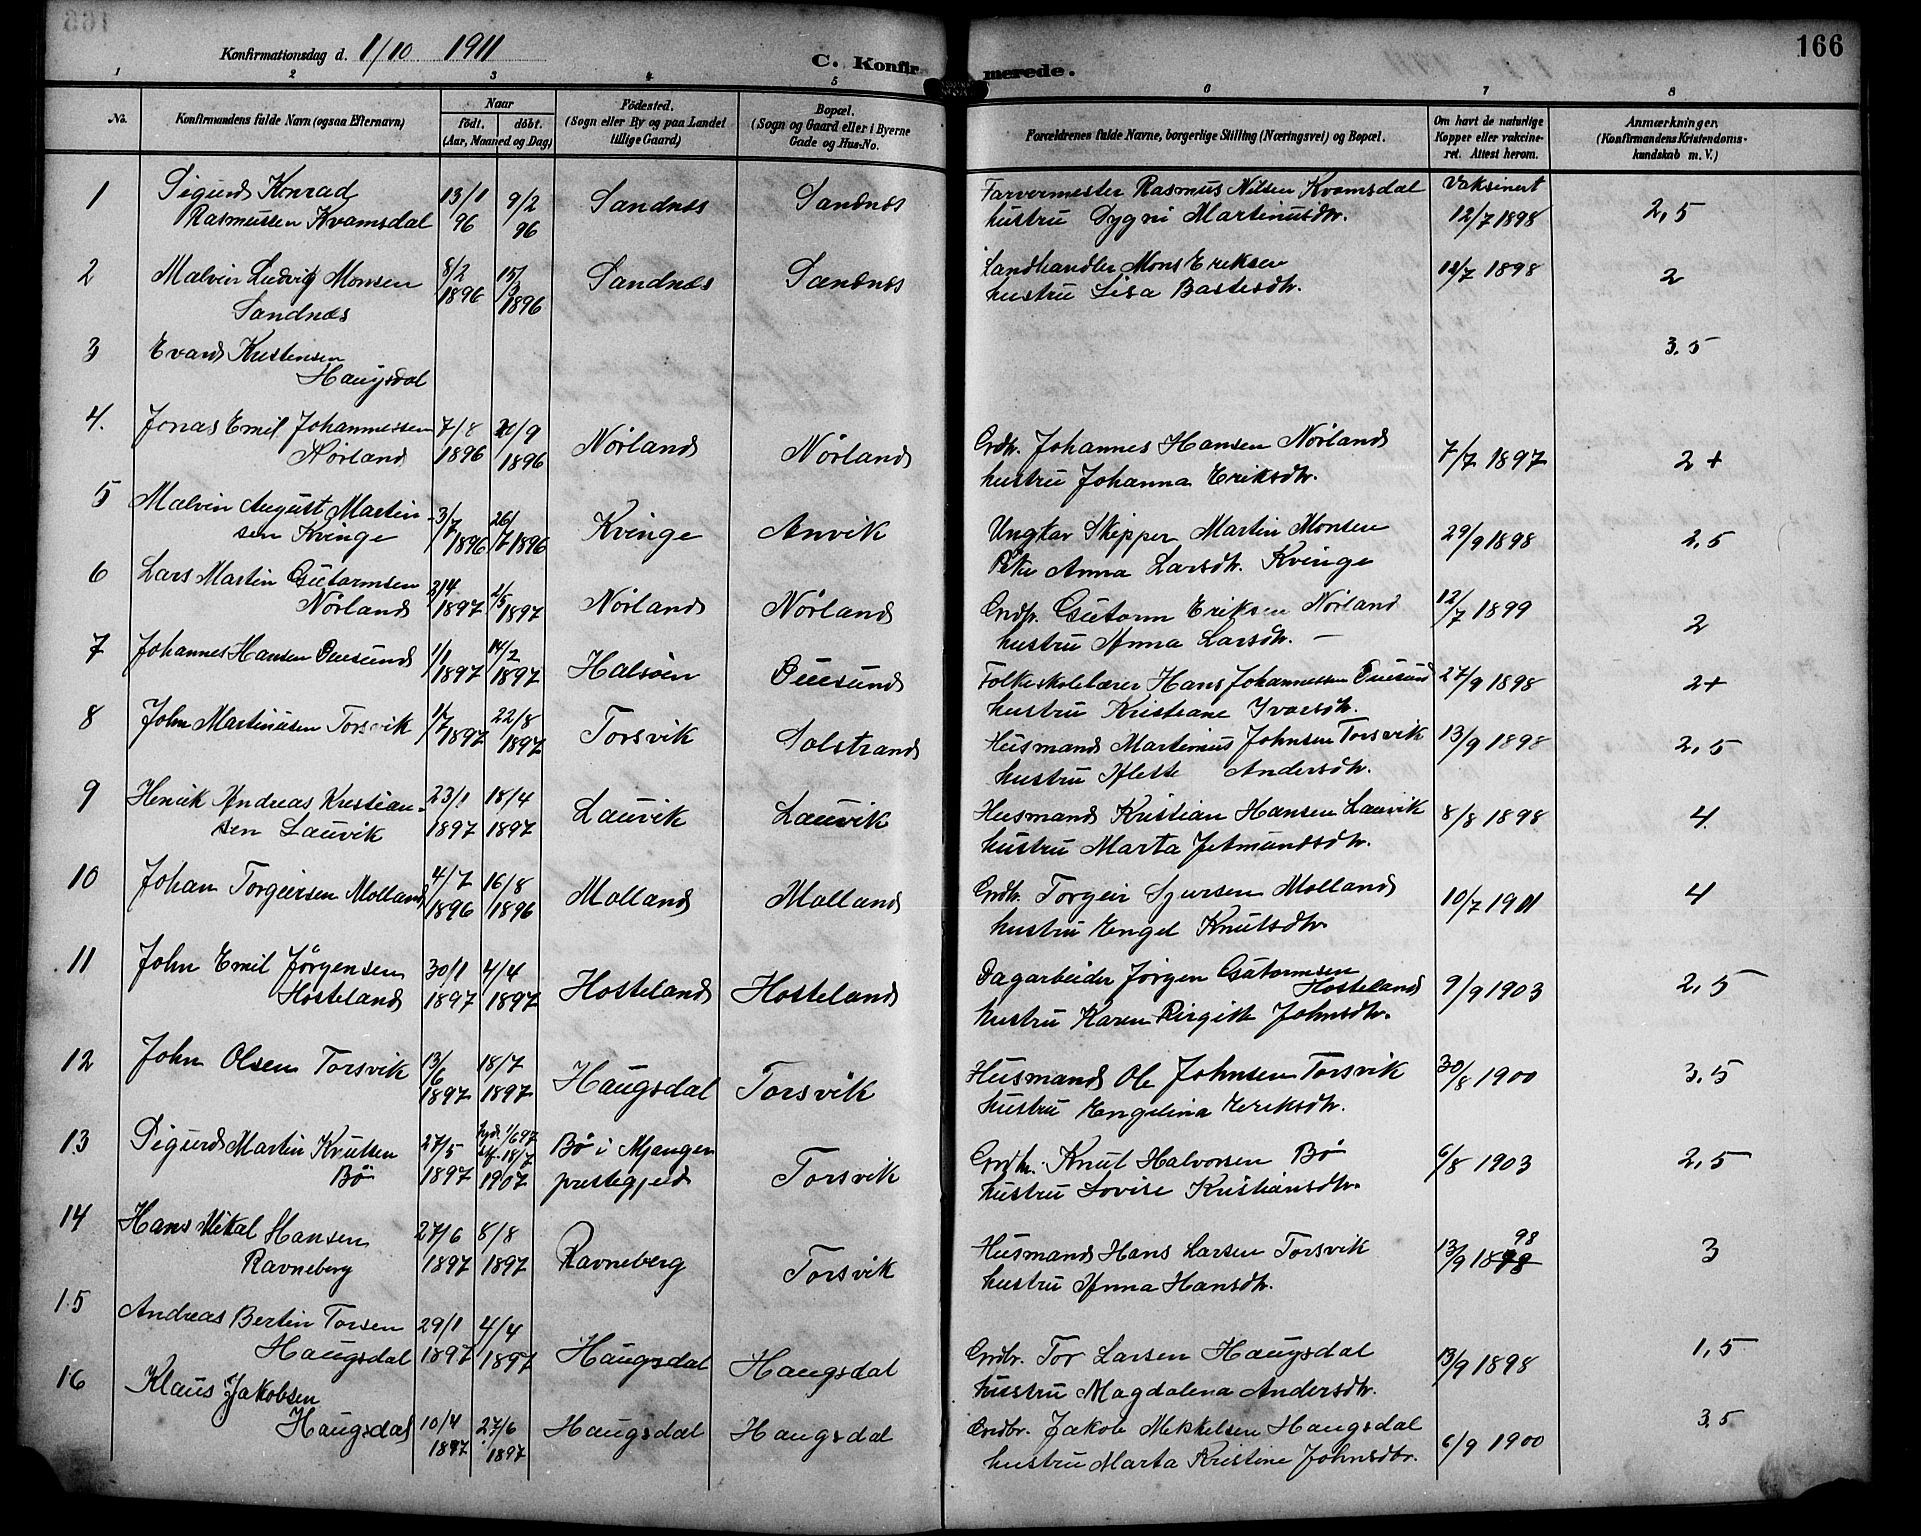 Konfirmationsdag d. 1/10 1911
C. Konfirmerede.
166
1 2 3 4 5 6 7 8
No.
Konfirmandens fulde Navn (ogsaa Efternavn)
Naar
født. døbt.
(Aar, Maaned og Dag)
Fødested.
(Sogn eller By og paa Landet
tillige Gaard)
Bopæl.
(Sogn og Gaard eller i Byerne
Gade og Hus-No.
Forældrenes fulde Navne, borgerlige Stilling (Næringsvei) og Bopæl.
Om havt de naturlige
Kopper eller vakcine-
ret. Attest herom.
Anmærkninger.
(Konfirmandens Kristendoms-
kundskab m. V.)
1 Sigurd Konrad 13/1 9/2 Sandnæs Sandnæs Farvermester Rasmus Nilsen Kvamsdal Vaksinert 2,5
Rasmussen Kvamsdal 96 96 hustru Sygni Martinusdtr. 12/7 1898
2 Malvin Ludvig Monsen 8/2 15/3 Sandnæs Sandnæs Landhandler Mons Eriksen 12/7 1898 2
Sandnæs 1896 1896 hustru Lisa Bastesdtr.
3 Evard Kristensen 3.5
Haugsdal
4. Jonas Emil Johannessen 7/8 /9 Nørland Nørland Grdbr. Johannes Hansen Nørland 7/7 1897 2+
Nørland 1896 1896 hustru Johanna Eriksdtr.
5 Malvin August Martin- 3/7 26/7 Kvinge Anvik Ungkar Skipper Martin Monsen 29/9 1898 2,5
sen Kvinge 1896 1896 Pike Anna Larsdtr. Kvinge
6 Lars Martin Gutormsen 2/4 2/5 Nørland Nørland Grdbr. Gutorm Eriksen Nørland 12/7 1899 2
Nørland 1897 1897 hustru Anna Larsdtr. —
7 Johannes Hansen Duesund 1/1 14/2 Halsøen Duesund Folkeskolelærer Hans Johannessen Duesund 27/9 1898 2+
1897 1897 hustru Kristiane Ivarsdtr.
8 John Martinusen Torsvik 1/7 22/8 Torsvik Solstrand Husmand Martinus Johnsen Torsvik 13/9 1898 2,5
1897 1897 hustru Alette Andersdtr.
9 Henrik Andreas Kristian- 23/1 18/4 Lauvik Lauvik Husmand Kristian Hansen Lauvik 8/8 1898 4.
sen Lauvik 1897 1897 hustru Marta Jetmundsdtr.
10 Johan Torgeirsen Molland 4/7 16/8 Molland Molland Grdbr. Torgeir Sjursen Molland 10/7 1901 4
1896 1896 hustru Engel Knutsdtr.
11 John Emil Jørgensen 30/1 4/4 Hosteland Hosteland Dagarbeider Jørgen Gutormsen Hosteland 9/9 1903 2,5
Hosteland 1897 1897 hustru Karen Birgitte Johnsdtr.
12 John Olsen Torsvik 13/6 18/7 Haugsdal Torsvik Husmand Ole Johnsen Torsvik 30/8 1900 3,5
1897 1897 hustru Engelina Eriksdtr.
13 Sigurd Martin Knutsen 27/5 hjd. 1/6 97 Bø i Mangen Torsvik Grdbr. Knut Halvorsen Bø 6/8 1903 2,5
Bø 1897 stf. 18/7 1907 prestegjeld hustru Lovise Kristiansdtr.
14 Hans Mikal Hansen 27/6 8/8 Ravneberg Torsvik Husmand Hans Larsen Torsvik 13/9 1898 3
Ravneberg 1897 1897 hustru Anna Hansdtr.
15 Andreas Bertin Torsen 29/1 4/4 Haugsdal Haugsdal Grdbr. Tor Larsen Haugsdal 13/9 1898 1,5
Haugsdal 1897 1897 hustru Magdalena Andersdtr.
16 Klaus Jakobsen 10/4 27/6 Haugsdal Haugsdal Grdbr. Jakob Mikkelsen Haugsdal 6/9 1900 3.5
Haugsdal 1897 1897 hustru Marta Kristine Johnsdtr.